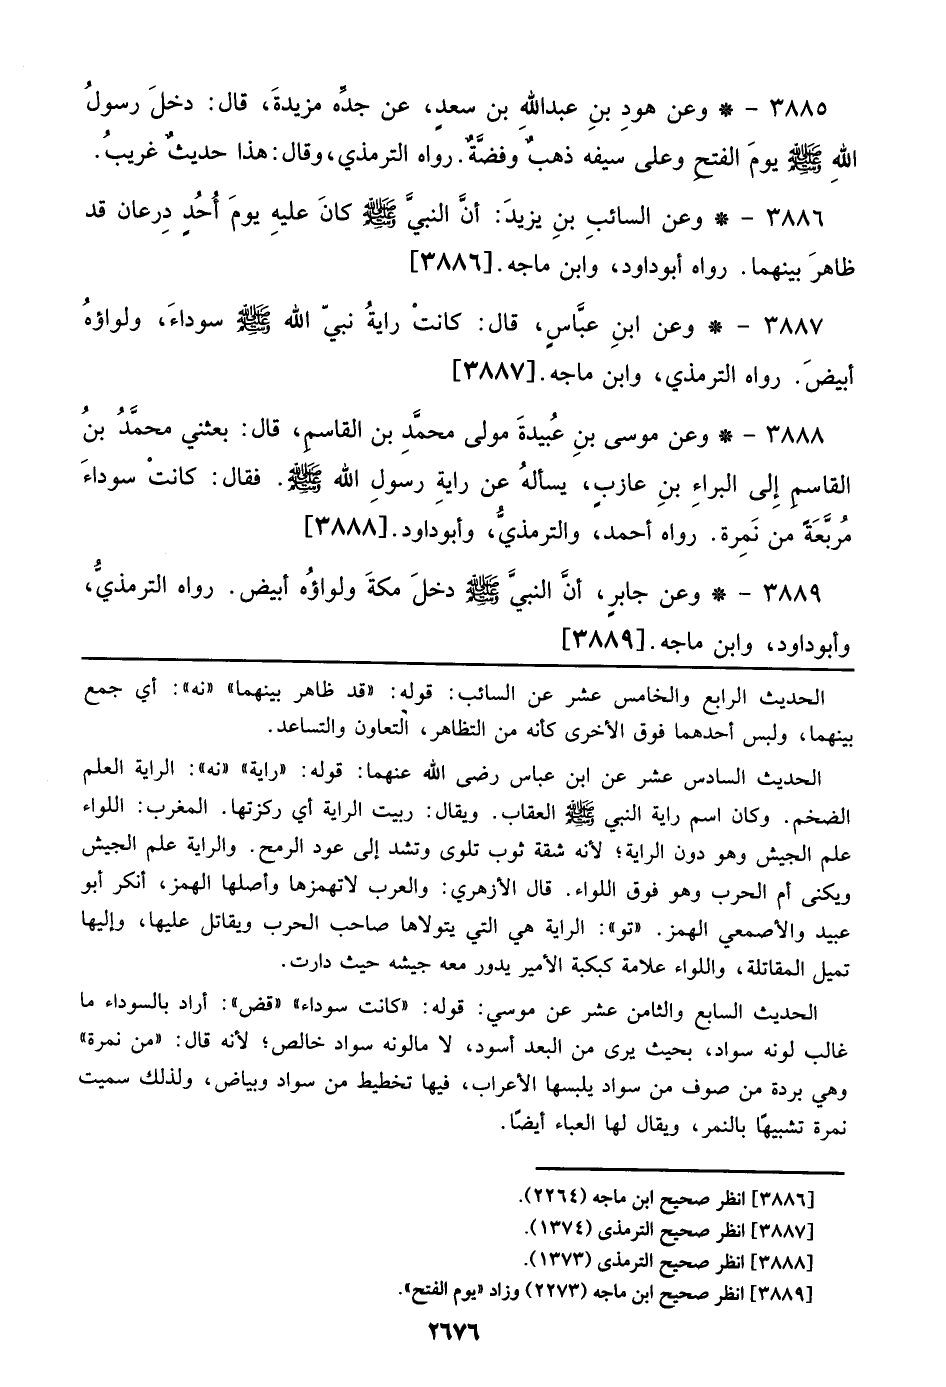 ٣٨٨٥ – * وعن هودِ بنِ عبداللهِ بن سعدٍ، عن جدِّه مزيدةَ، قال: دخلَ رسولُ
اللهِ ﷺ يومَ الفتحِ وعلى سيفه ذهبٌ وفضَّةٌ. رواه الترمذي، وقال: هذا حديثٌ غريبُ.
٣٨٨٦ – * وعن السائبِ بنِ يزيدَ: أنَّ النبيَّ ﷺ كانَ عليهِ يومَ أُحُدٍ دِرعان قد
ظاهرَ بينهما. رواه أبوداود، وابن ماجه.[٣٨٨٦]
٣٨٨٧ – * وعن ابنِ عبَّاسٍ، قال: كانتْ رايةُ نبيّ الله ﷺ سوداءَ، ولواؤهُ
أبيضَ. رواه الترمذي، وابن ماجه.[٣٨٨٧]
٣٨٨٨ – * وعن موسى بنِ عُبيدةَ مولى محمَّدِ بن القاسمِ، قال: بعثني محمَّدُ بنُ
القاسمِ إِلى البراءِ بنِ عازبٍ، يسألهُ عن رايةِ رسولِ الله ﷺ. فقال: كانتْ سوداءَ
مُربَّعَةً من نَمِرة. رواه أحمد، والترمذيُّ، وأبوداود.[٣٨٨٨]
٣٨٨٩ – * وعن جابرٍ، أنَّ النبيَّ ﷺ دخلَ مكةَ ولواؤه أبيض. رواه الترمذيُّ،
وأبوداود، وابن ماجه.[٣٨٨٩]
الحديث الرابع والخامس عشر عن السائب: قوله: «قد ظاهر بينهما» «نه»: أي جمع
بينهما، ولبس أحدهما فوق الأخرى كأنه من التظاهر، التعاون والتساعد.
الحديث السادس عشر عن ابن عباس رضى الله عنهما: قوله: «راية» «نه»: الراية العلم
الضخم. وكان اسم راية النبي ﷺ العقاب. ويقال: ربيت الراية أي ركزتها. المغرب: اللواء
علم الجيش وهو دون الراية؛ لأنه شقة ثوب تلوى وتشد إلى عود الرمح. والراية علم الجيش
ويكنى أم الحرب وهو فوق اللواء. قال الأزهري: والعرب لاتهمزها وأصلها الهمز، أنكر أبو
عبيد والأصمعي الهمز. «تو»: الراية هي التي يتولاها صاحب الحرب ويقاتل عليها، وإليها
تميل المقاتلة، واللواء علامة كبكبة الأمير يدور معه جيشه حيث دارت.
الحديث السابع والثامن عشر عن موسي: قوله: «كانت سوداء» «قض»: أراد بالسوداء ما
غالب لونه سواد، بحيث يرى من البعد أسود، لا مالونه سواد خالص؛ لأنه قال: «من نمرة»
وهي بردة من صوف من سواد يلبسها الأعراب، فيها تخطيط من سواد وبياض، ولذلك سميت
نمرة تشبيهًا بالنمر، ويقال لها العباء أيضًا.
[٣٨٨٦] انظر صحيح ابن ماجه (٢٢٦٤).
[٣٨٨٧] انظر صحيح الترمذى (١٣٧٤).
[٣٨٨٨] انظر صحيح الترمذى (١٣٧٣).
[٣٨٨٩] انظر صحيح ابن ماجه (٢٢٧٣) وزاد «يوم الفتح».
٢٦٧٦